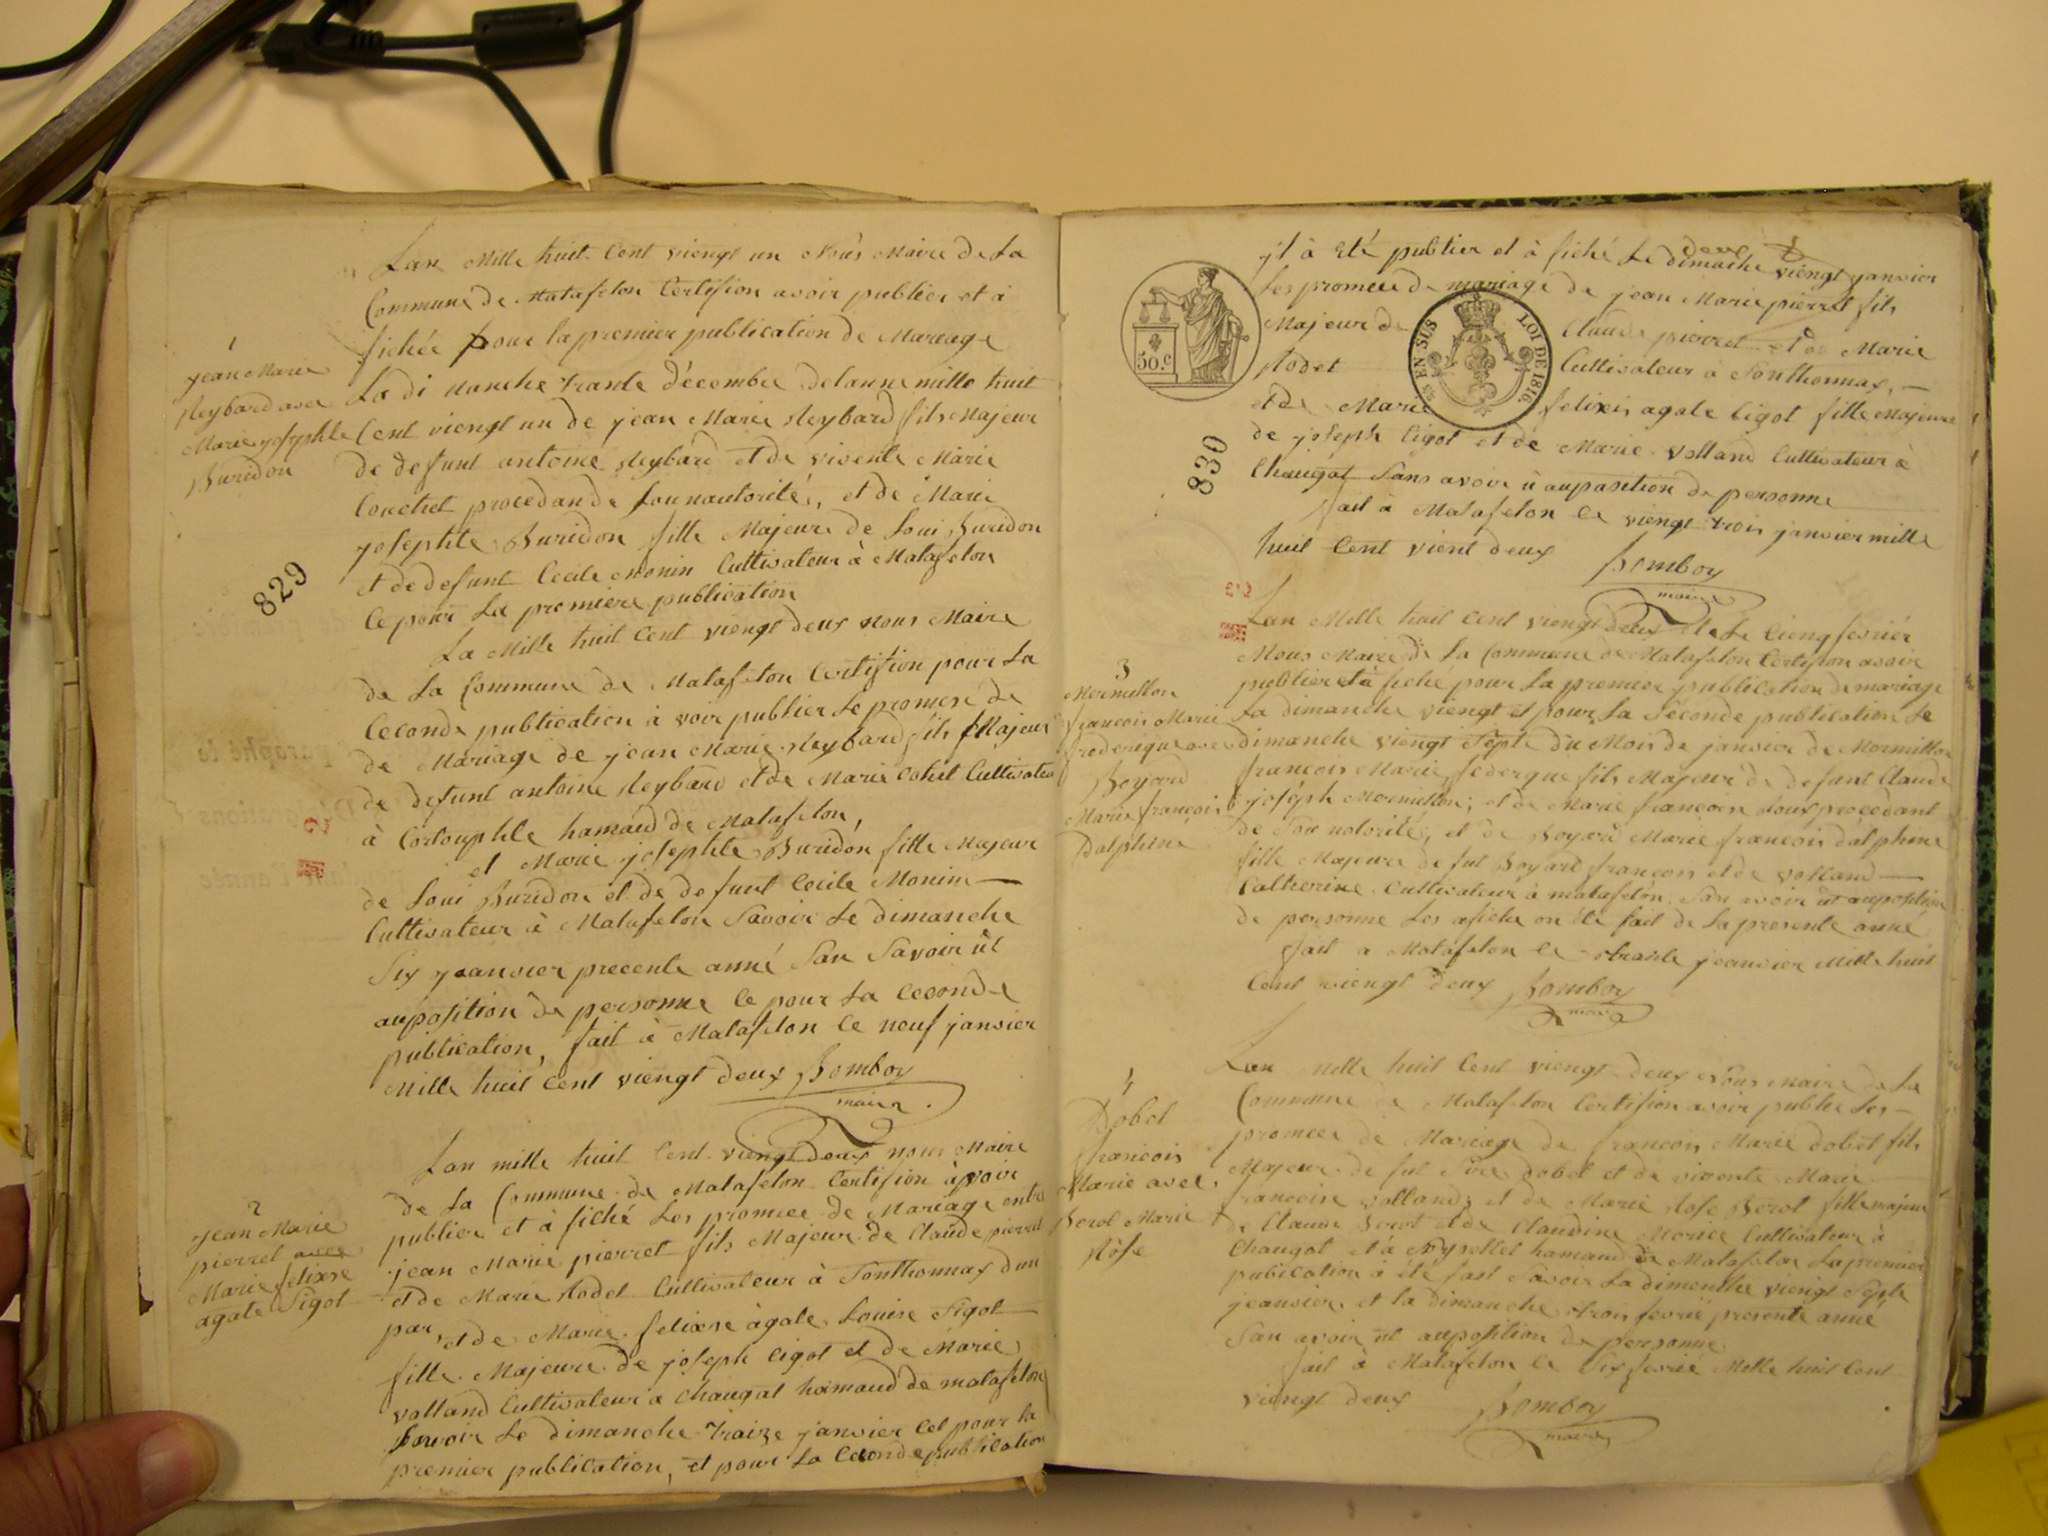 Lan Mille huit Cent viengt un Nous Maire de La
Commune de Matafelon Certifion avoir publier et à
fichée pour la premier publication de Mariage
La di manche trante décembre delanne mille huit
Cent viengt un de jean Marie Reybard fils Majeur
de defunt antoine Reybard et de vivente Marie
Couchet procedan de sounautorité, et de Marie
josephte Buridon fille Majeure de Loui Buridon
et de defunt Cecile Monin Cultivateur à Matafelon
Ce pour La premiere publication
1
jean Marie
Reybard avec
Marie josephte
Buridon
829
La Mille huit Cent viengt deux nous Maire
de La Commune de Matafelon Certifion pour La
Ceconde publication à voir publier Le promese de
de Mariage de jean Marie Reybard fils Majeur
de defunt antoine Reybard et de Marie Cohet Cultivateu
à Corlouphle hamaud de Matafelon,
et Marie josephte Buridon fille Majeur
de Loui Buridon et de defunt Cecile Monin
Cultivateur à Matafelon Savoir Le dimanche
Six jeanvier precente anné San Savoir ût
auposition de personne Ce pour La Ceconde
publication, fait à Matafelon Ce neuf janvier
Mille huit Cent viengt deux Bomboy
maire
Lan mille huit Cent viengt deux nous Maire
de La Commune de Matafelon Certifion àvoir
publier et à fiché Les promeee de Mariage entre
jean Marie pierret fils Majeur de Claude pierret
et de Marie Rodet Cultivateur à Sonthonnax dun
par, et de Marie felixse àgate Louise Sigot
fille Majeure de joseph Cigot et de Marie
volland Cultivateur à Chaugat hamaud de matafelon
Savoir Le dimanche Traize janvier Cet pour la
premier publication, et pour La Ceconde publication
2
jean Marie
pierret avec
Marie felixse
agate Sigot
jl à Eté publier et à fiché Le dimache deux viengt janvier
Les promeee de mariage de jean Marie pierret fils
Majeur de Claude pierret et de Marie
Rodet Cultivateur à Sonthonnax,
et de Marie felixis agate Cigot fille Majeure
de joseph Cigot et de Marie volland Cultivateur à
Chaugat Sans avoir û auposition de personne
fait à Matafelon Ce viengt trois janvier mille
huit Cent vient deux Bomboy
maire
50.c
EN SUS
LOI DE 1816
830
Lan Mille huit Cent viengt deux et Le Cienq fevriér
Nous Maire de La Commune de Matafelon Certifion avoir
publier et à fiché pour La premier publication de mariage
La dimanche viengt et pour La Seconde publication Le
dimanche viengt Septe du Mois de janvier de Mermillon
francois Marie federque fils Majeur de defunt Claude
joseph Mermillon; et de Marie francoise procedant
de Son notorité, et de Boyard Marie francois dalphine
fille Majeure de fut Boyard francois et de volland
Catherine Cultivateur à matafelon San avoir ût auposition
de personne Les afiche on été fait de La presente anné
fait a Matafelon Ce trante jeanvier Mille huit
Cent viengt deux Bomboy
maire
3
Mermillon
francois Marie
frederique avec
Boyard
Marie francois
Dalphine
Lan Mille huit Cent viengt deux Nous Maire de La
Commune de Matafelon Certifion avoir publié Les
promeee de Mariage de francois Marie dobet fils
Majeur de fut dobet et de vivente Marie
francoise volland; et de Marie Rose Berot fille majeur
de Claude Berot et de Claudine Morier Cultivateur à
Chaugat et à hamaud de Matafelon La premier
publication à été fait Savoir La dimenche viengt Septe
jeanvier et la dimanche trois fevrié presente anné
San avoir ût auposition de personne
fait à Matafelon Ce Six fevrié Mille huit Cent
viengt deux Bomboy
maire
4
Dobet
francois
Marie avec
Berot Marie
Rose